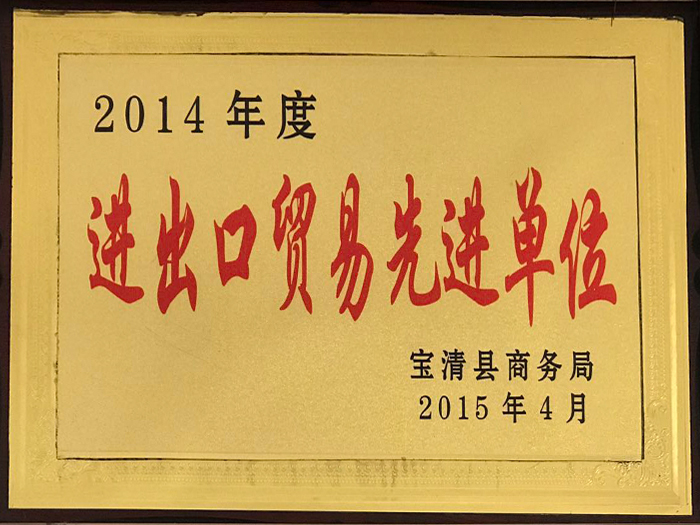 2014年度
进出口贸易先进单位
宝清县商务局
2015年4月